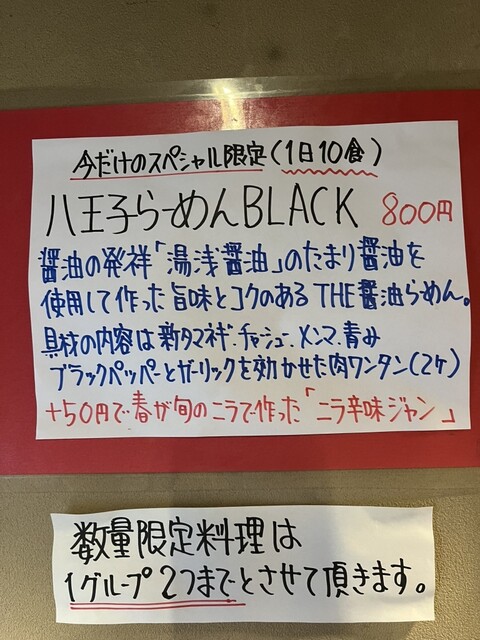 今だけのスペシャル限定(1日10食)
八王子らーめんBLACK 800円
醤油の発祥「湯浅醤油」のたまり醤油を
使用して作った旨味とコクのあるTHE醤油らーめん。
具材の内容は新タマネギ.チャシュー.メンマ.青み
ブラックペッパーとガーリックを効かせた肉ワンタン(2ケ)
+50円で春が旬のニラで作った「ニラ辛味ジャン」
数量限定料理は
1グループ2つまでとさせて頂きます。